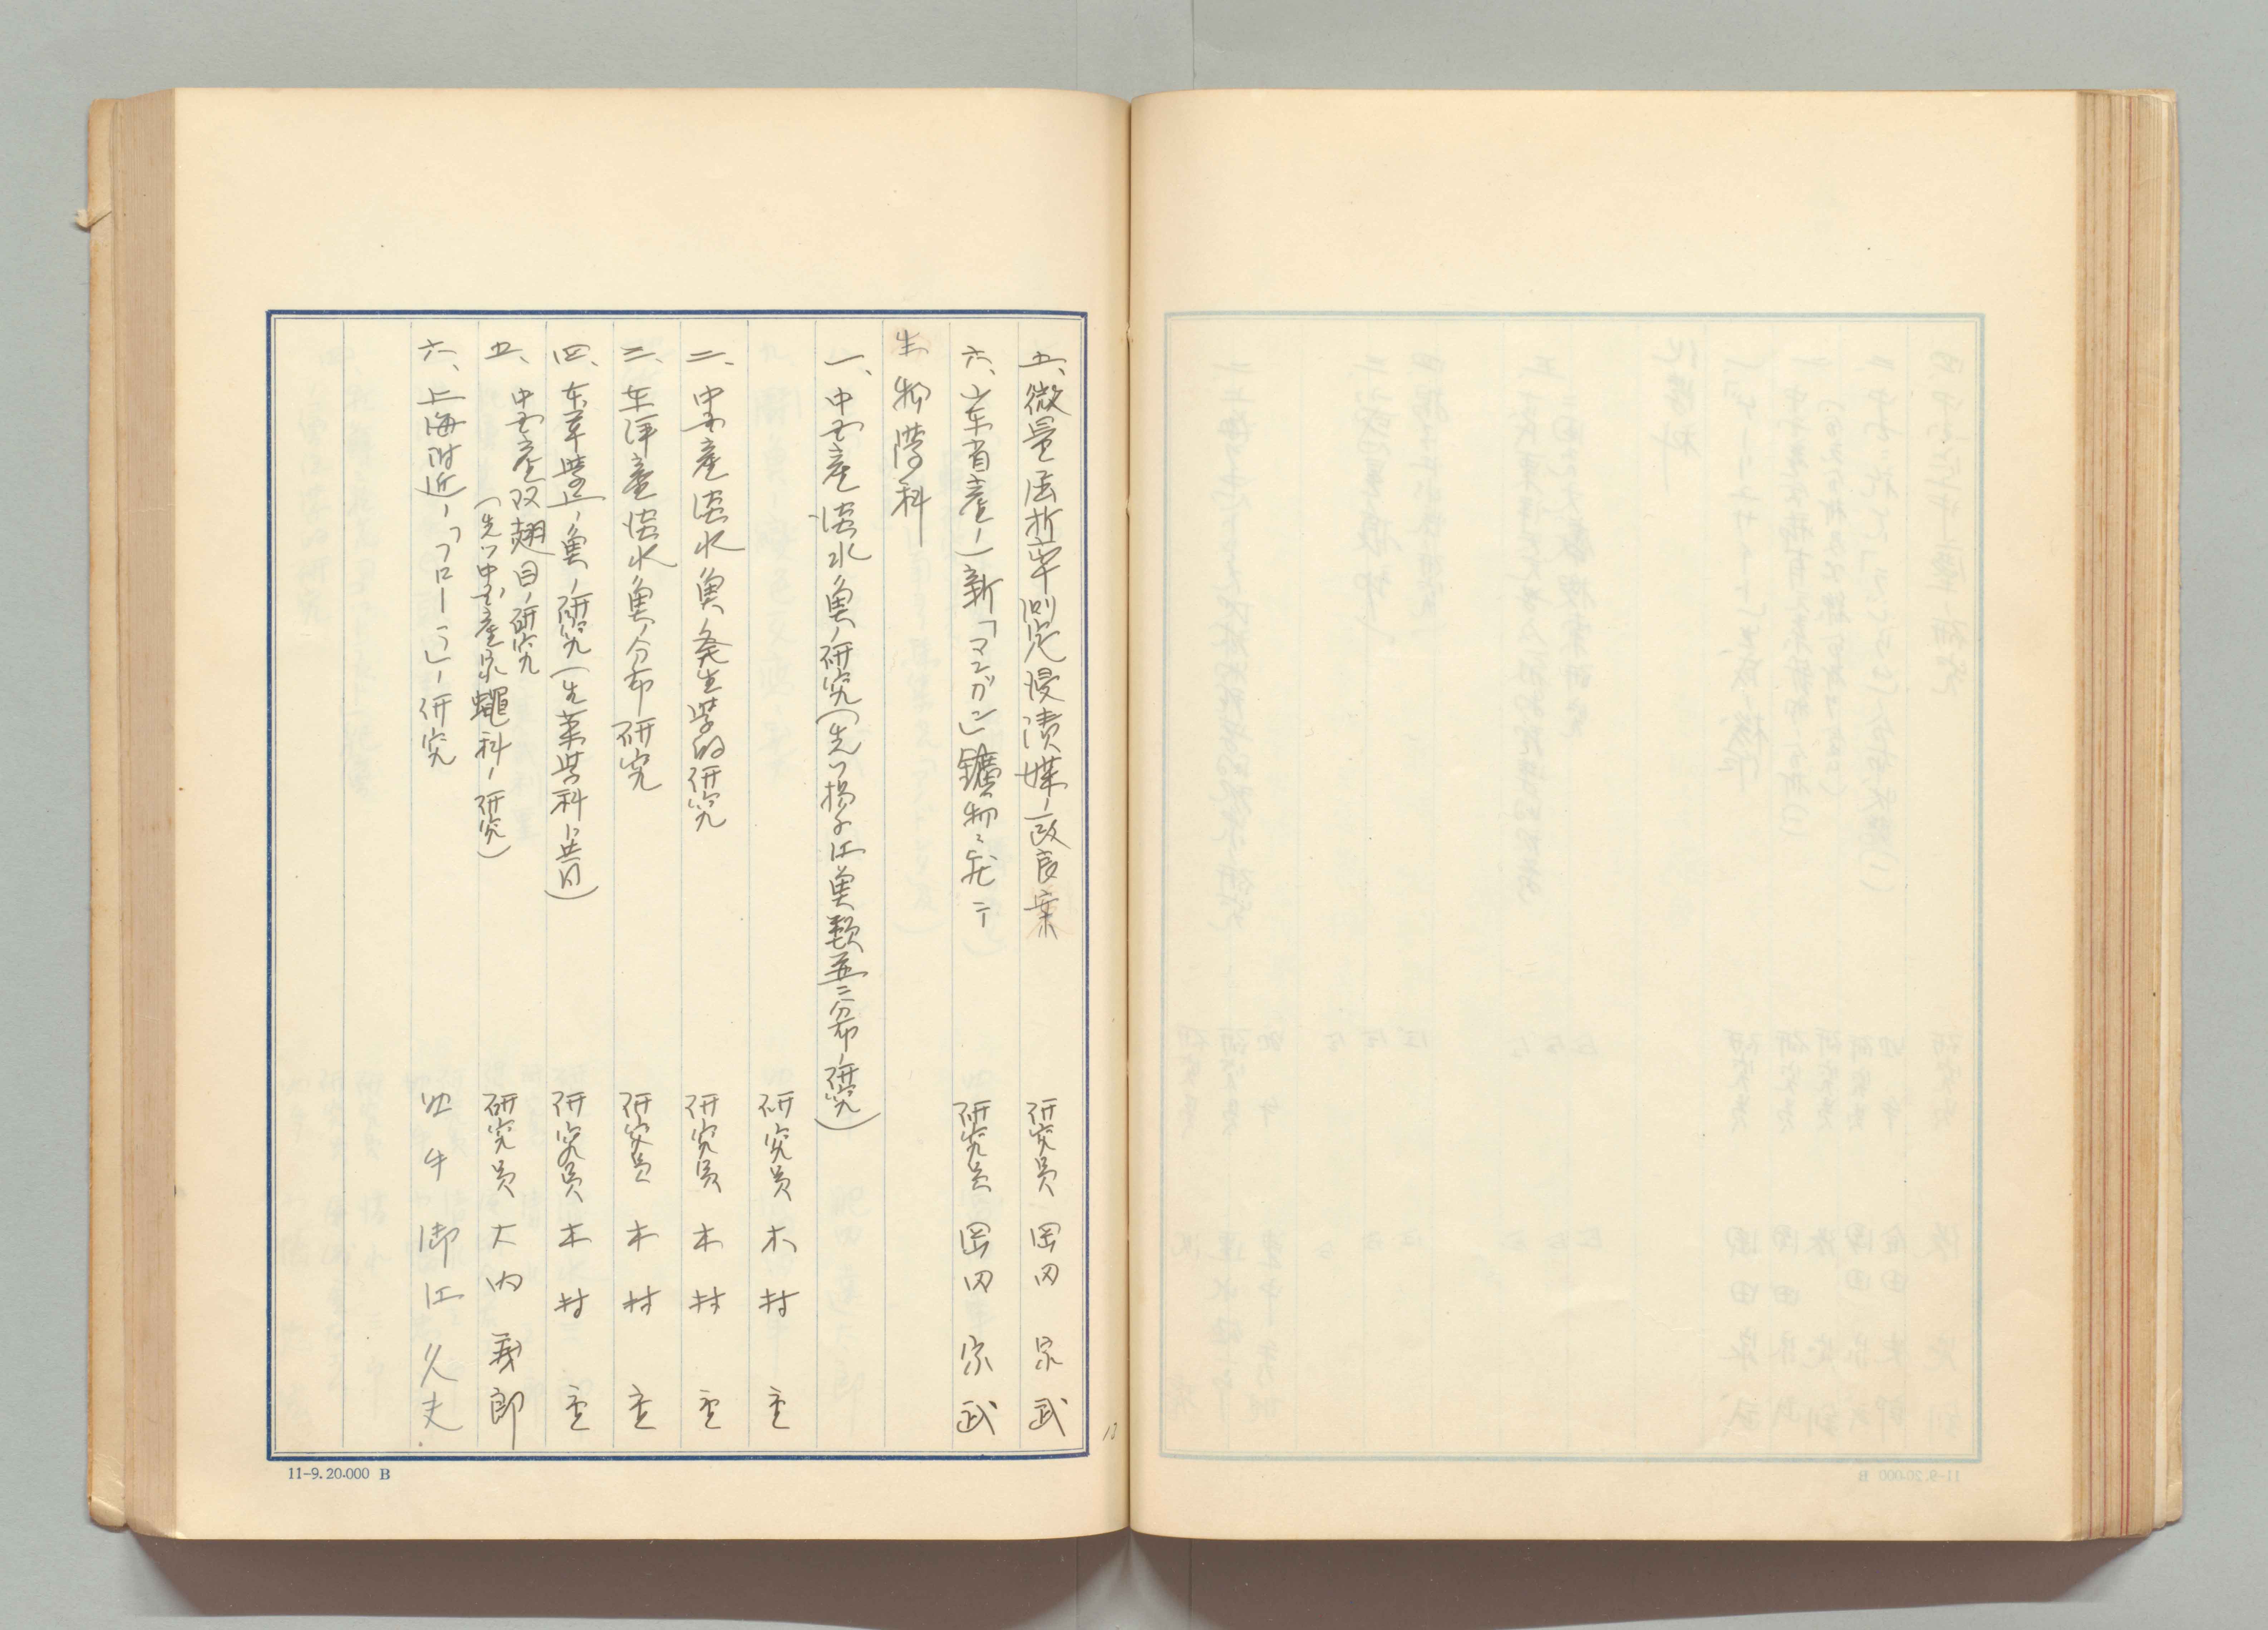 五、微量屈折率測定浸漬媒ノ一改良案 研究員 岡田 家武
六、山東省産ノ一新「マンガン」鑛物ニ就テ 研究員 岡田 家武
生物學科
一、中支産淡水魚ノ研究(先ヅ揚子江魚類並ニ分布ノ研究)
研究員 木村 重
二、中支産淡水魚ノ発生學的研究 研究員 木村 重
三、東洋産淡水魚ノ分布研究 研究員 木村 重
四、本草學上ノ魚ノ研究(生薬學科ト共同) 研究員 木村 重
五、中支産双翅目ノ研究
(先ヅ中支産家蠅科ノ研究) 研究員 大内 義郎
六、上海附近ノ「フローラ」ノ研究 助手 御江 久夫
11-9.20.000 B